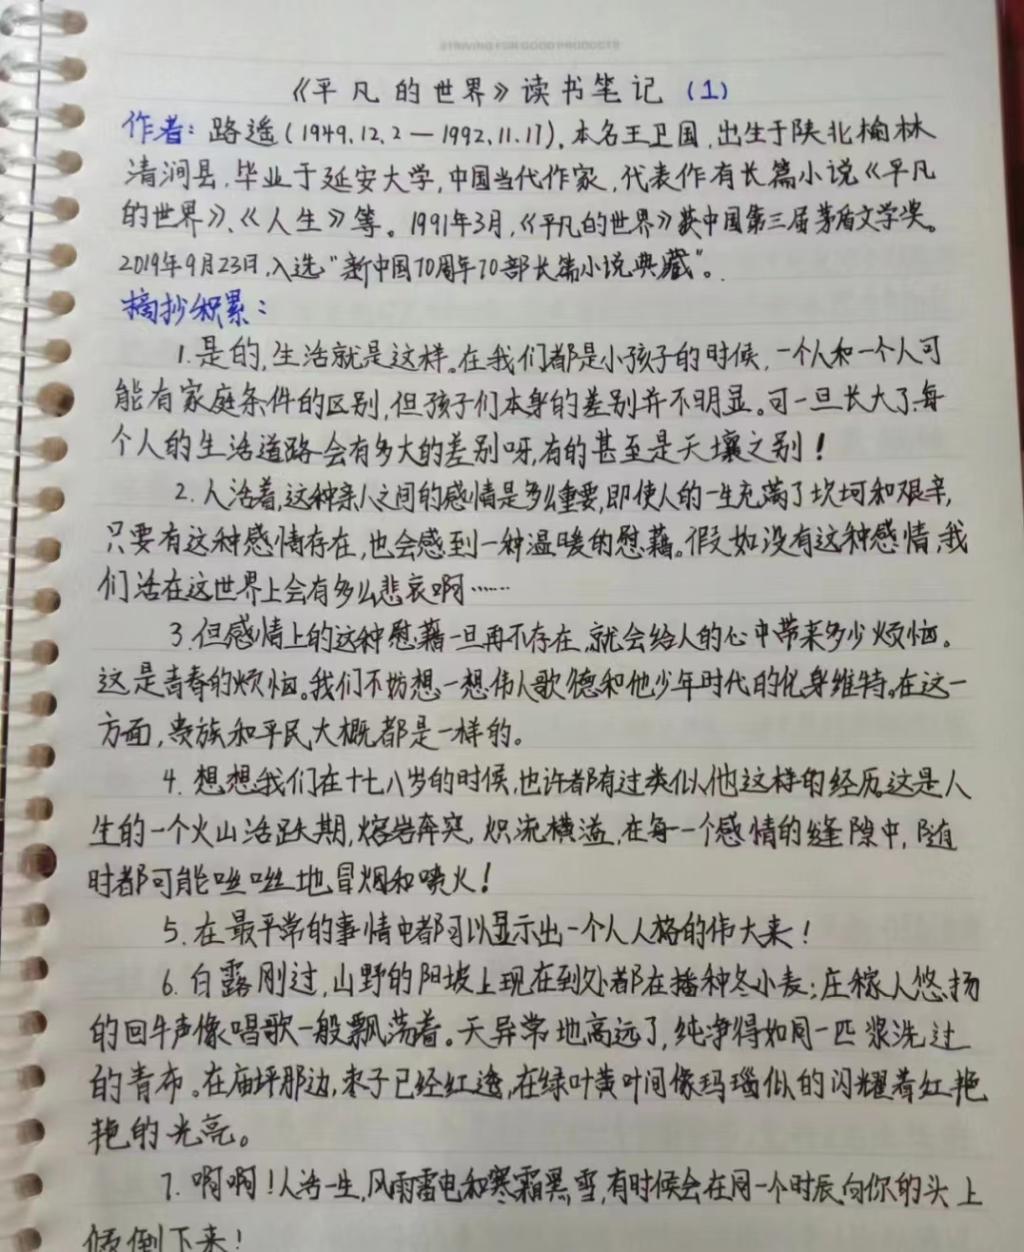 STRIVING FOR GOOD PRODUCTS
《平凡的世界》读书笔记(1)
作者:路遥(1949.12.2—1992.11.17),本名王卫国,出生于陕北榆林
清涧县,毕业于延安大学,中国当代作家,代表作有长篇小说《平凡
的世界》、《人生》等。1991年3月,《平凡的世界》获中国第三届茅盾文学奖。
2019年9月23日,入选"新中国70周年70部长篇小说典藏"。
摘抄积累:
1.是的,生活就是这样。在我们都是小孩子的时候,一个人和一个人可
能有家庭条件的区别,但孩子们本身的差别并不明显。可一旦长大了,每
个人的生活道路会有多大的差别呀,有的甚至是天壤之别!
2.人活着,这种亲人之间的感情是多么重要,即使人的一生充满了坎坷和艰辛,
只要有这种感情存在,也会感到一种温暖的慰藉。假如没有这种感情,我
们活在这世界上会有多么悲哀啊……
3.但感情上的这种慰藉一旦再不存在,就会给人的心中带来多少烦恼。
这是青春的烦恼。我们不妨想一想伟人歌德和他少年时代的化身维特。在这一
方面,贵族和平民大概都是一样的。
4.想想我们在十七八岁的时候,也许都有过类似他这样的经历。这是人
生的一个火山活跃期,熔岩奔突,炽流横溢,在每一个感情的缝隙中,随
时都可能咝咝地冒烟和喷火!
5.在最平常的事情中都可以显示出一个人人格的伟大来!
6.白露刚过,山野的阳坡上现在到处都在播种冬小麦;庄稼人悠扬
的回牛声像唱歌一般飘荡着。天异常地高远了,纯净得如同一匹浆洗过
的青布。在庙坪那边,枣子已经红透,在绿叶黄叶间像玛瑙似的闪耀着红艳
艳的光亮。
7.啊啊!人活一生,风雨雷电和寒霜黑雪,有时候会在同一个时辰向你的头上
倾倒下来!